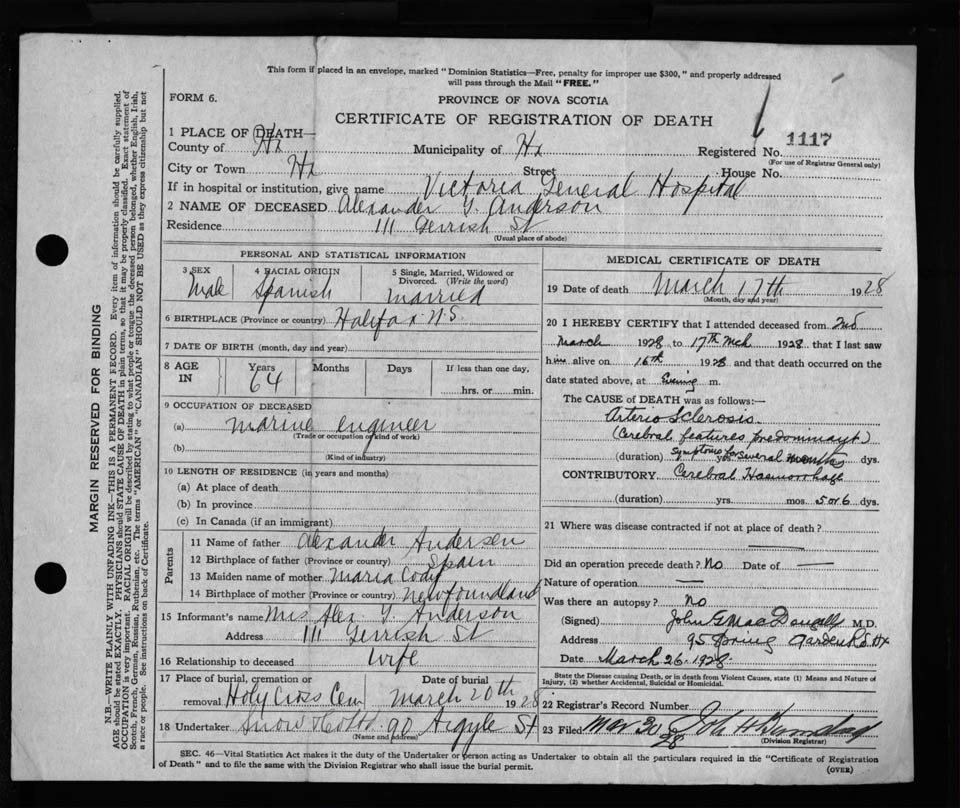 This form if placed in an envelope, marked "Dominion Statistics—Free, penalty for improper use $300," and properly addressed
will pass through the Mail "FREE."
FORM 6.
PROVINCE OF NOVA SCOTIA
CERTIFICATE OF REGISTRATION OF DEATH
1117
1 PLACE OF DEATH—
County of Hx Municipality of Hx Registered No.
(For use of Registrar General only)
City or Town Hx Street House No.
If in hospital or institution, give name Victoria General Hospital
2 NAME OF DECEASED Alexander Y. Anderson
Residence 111 Gerrish St
(Usual place of abode)
PERSONAL AND STATISTICAL INFORMATION
3 SEX
Male
4 RACIAL ORIGIN
Spanish
5 Single, Married, Widowed or
Divorced. (Write the word)
married
6 BIRTHPLACE (Province or country) Halifax N.S.
7 DATE OF BIRTH (month, day and year)
8 AGE
IN
Years
64
Months
Days
If less than one day,
hrs. or min.
9 OCCUPATION OF DECEASED
(a) Marine engineer
(Trade or occupation or kind of work)
(b)
(Kind of industry)
10 LENGTH OF RESIDENCE (in years and months)
(a) At place of death
(b) In province
(c) In Canada (if an immigrant)
Parents
11 Name of father Alexander Andersen
12 Birthplace of father (Province or country) Spain
13 Maiden name of mother Maria Cody
14 Birthplace of mother (Province or country) Newfoundland
15 Informant's name Mrs Alex Y. Anderson
Address 111 Gerrish St
16 Relationship to deceased wife
17 Place of burial, cremation or Date of burial
removal Holy Cross Cem March 20th 1928
18 Undertaker Snow & Co Ltd 90 Argyle St
(Name and address)
MEDICAL CERTIFICATE OF DEATH
19 Date of death March 17th 1928
(Month, day and year)
20 I HEREBY CERTIFY that I attended deceased from 2nd
March 1928 to 17th Mch 1928 that I last saw
him alive on 16th 1928 and that death occurred on the
date stated above, at Evening m.
The CAUSE OF DEATH was as follows:—
Arterio Sclerosis
(Cerebral features predominant)
(duration) symptoms for several months yrs. dys.
CONTRIBUTORY Cerebral Haemorrhage
(duration) yrs. mos. 5 or 6 dys.
21 Where was disease contracted if not at place of death?
—
Did an operation precede death? No Date of —
Nature of operation —
Was there an autopsy? No
(Signed) John G MacDougall M.D.
Address 95 Spring Garden Rd Hx
Date March 26. 1928.
State the Disease causing Death, or in death from Violent Causes, state (1) Means and Nature of
Injury, (2) whether Accidental, Suicidal or Homicidal.
22 Registrar's Record Number
23 Filed Mar 30/28
(Division Registrar)
SEC. 46—Vital Statistics Act makes it the duty of the Undertaker or person acting as Undertaker to obtain all the particulars required in the "Certificate of Registration
of Death" and to file the same with the Division Registrar who shall issue the burial permit.
(OVER)
MARGIN RESERVED FOR BINDING
N.B.—WRITE PLAINLY WITH UNFADING INK—THIS IS A PERMANENT RECORD. Every item of information should be carefully supplied.
AGE should be stated EXACTLY. PHYSICIANS should STATE CAUSE OF DEATH in plain terms, so that it may be properly classified. Exact statement of
OCCUPATION is very important. RACIAL ORIGIN will be described by stating to what people or tongue the deceased person belonged, whether English, Irish,
Scotch, French, German, Russian, Ruthenian, etc. The terms "AMERICAN" or "CANADIAN" SHOULD NOT BE USED as they express citizenship but not
a race or people. See instructions on back of Certificate.